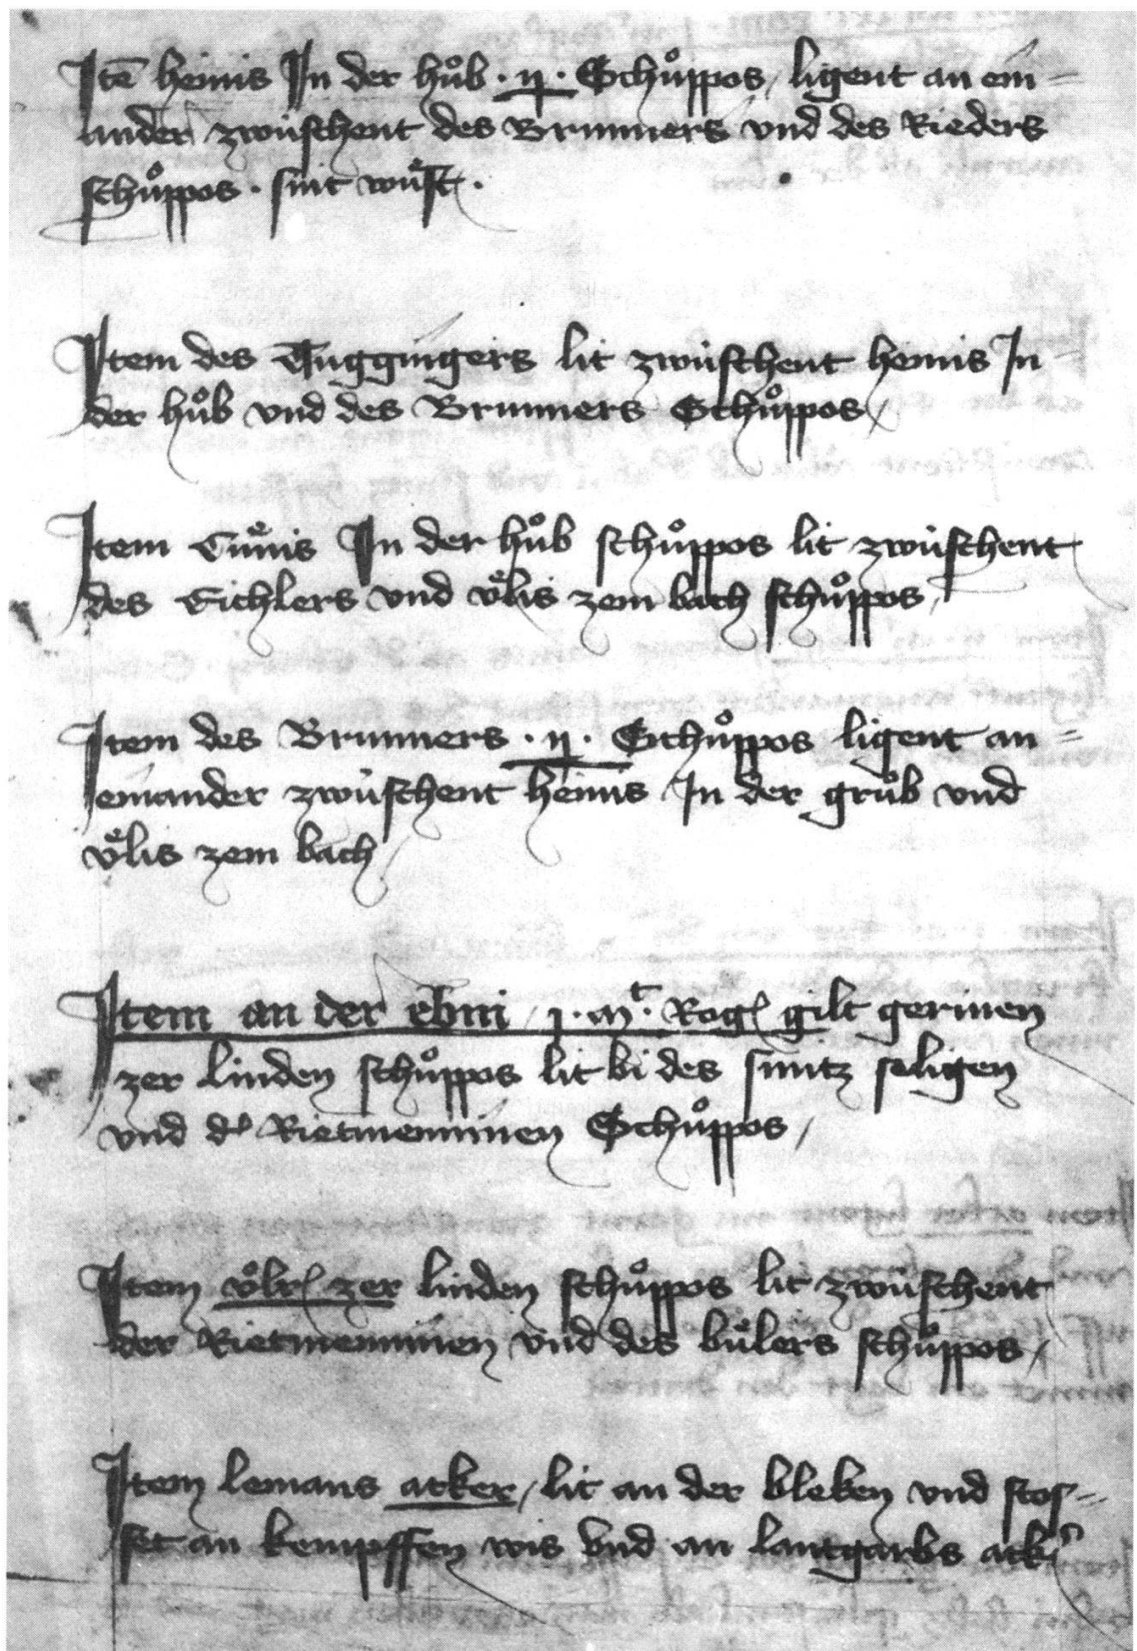 Itē heinis In der hůb · ij · Schůppos / ligent an ein=
ander zwùschent des Brunners vnd des Rieders
schůppos · sint wuͤst ·
Item des Tuggingers lit zwùschent heinis In
der hůb vnd des Brunners Schůppos /
Item Cuͤnis In der hůb schůppos lit zwùschent
des Eichlers vnd vͤlis zem bach schůppos /
Item des Brunners · ij · Schůppos ligent an=
einander zwùschent heinis In der grůb vnd
vͤlis zem bach /
Item an der ebni / j · mt · Rog gilt
zer linden schůppos lit bi des seligen
vnd d' Rietmenninen Schůppos /
Item zer linden schůppos lit zwùschent
der Rietmenninen vnd des buͤlers schůppos /
Item lemans acker / lit an der bleken vnd stos=
set an kempffen wis vnd an lantgarbs ack'